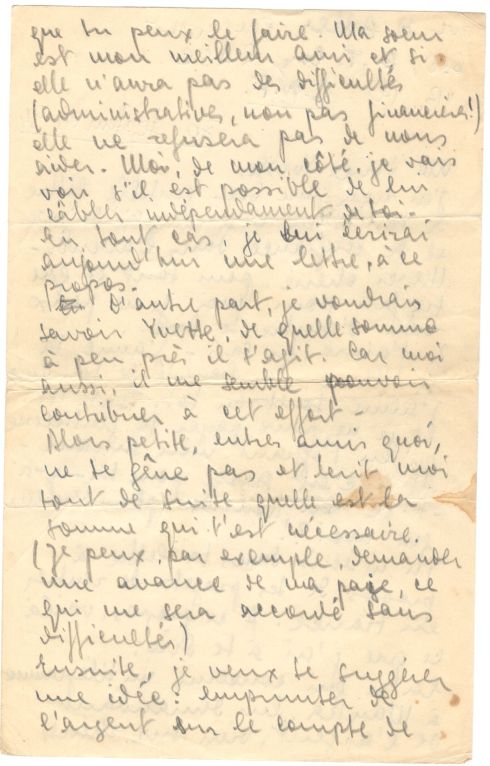 que tu peux le faire. Ma soeur
est mon meilleur ami et si
elle n'aura pas des difficultés
(administratives, non pas financières!)
elle ne refusera pas de nous
aider. Moi, de mon côté, je vais
voir s'il est possible de lui
câbler indépendament de toi.
En tout cas, je lui écrirai
aujourd'hui une lettre, à ce
propos.
D'autre part, je voudrais
savoir Yvette, de quelle somme
à peu près il s'agit. Car moi
aussi, il me semble pouvoir
contubrier à cet effort –
Alors petite, entres amis quoi,
ne te gêne pas et écrit moi
tout de suite quelle est la
somme qui t'est nécessaire.
(Je peux, par exemple, demander
une avance de ma paije, ce
qui me sera accordé sans
difficultés)
Ensuite, je veux te suggérer
une idée: emprunter de
l'argent sur le compte de